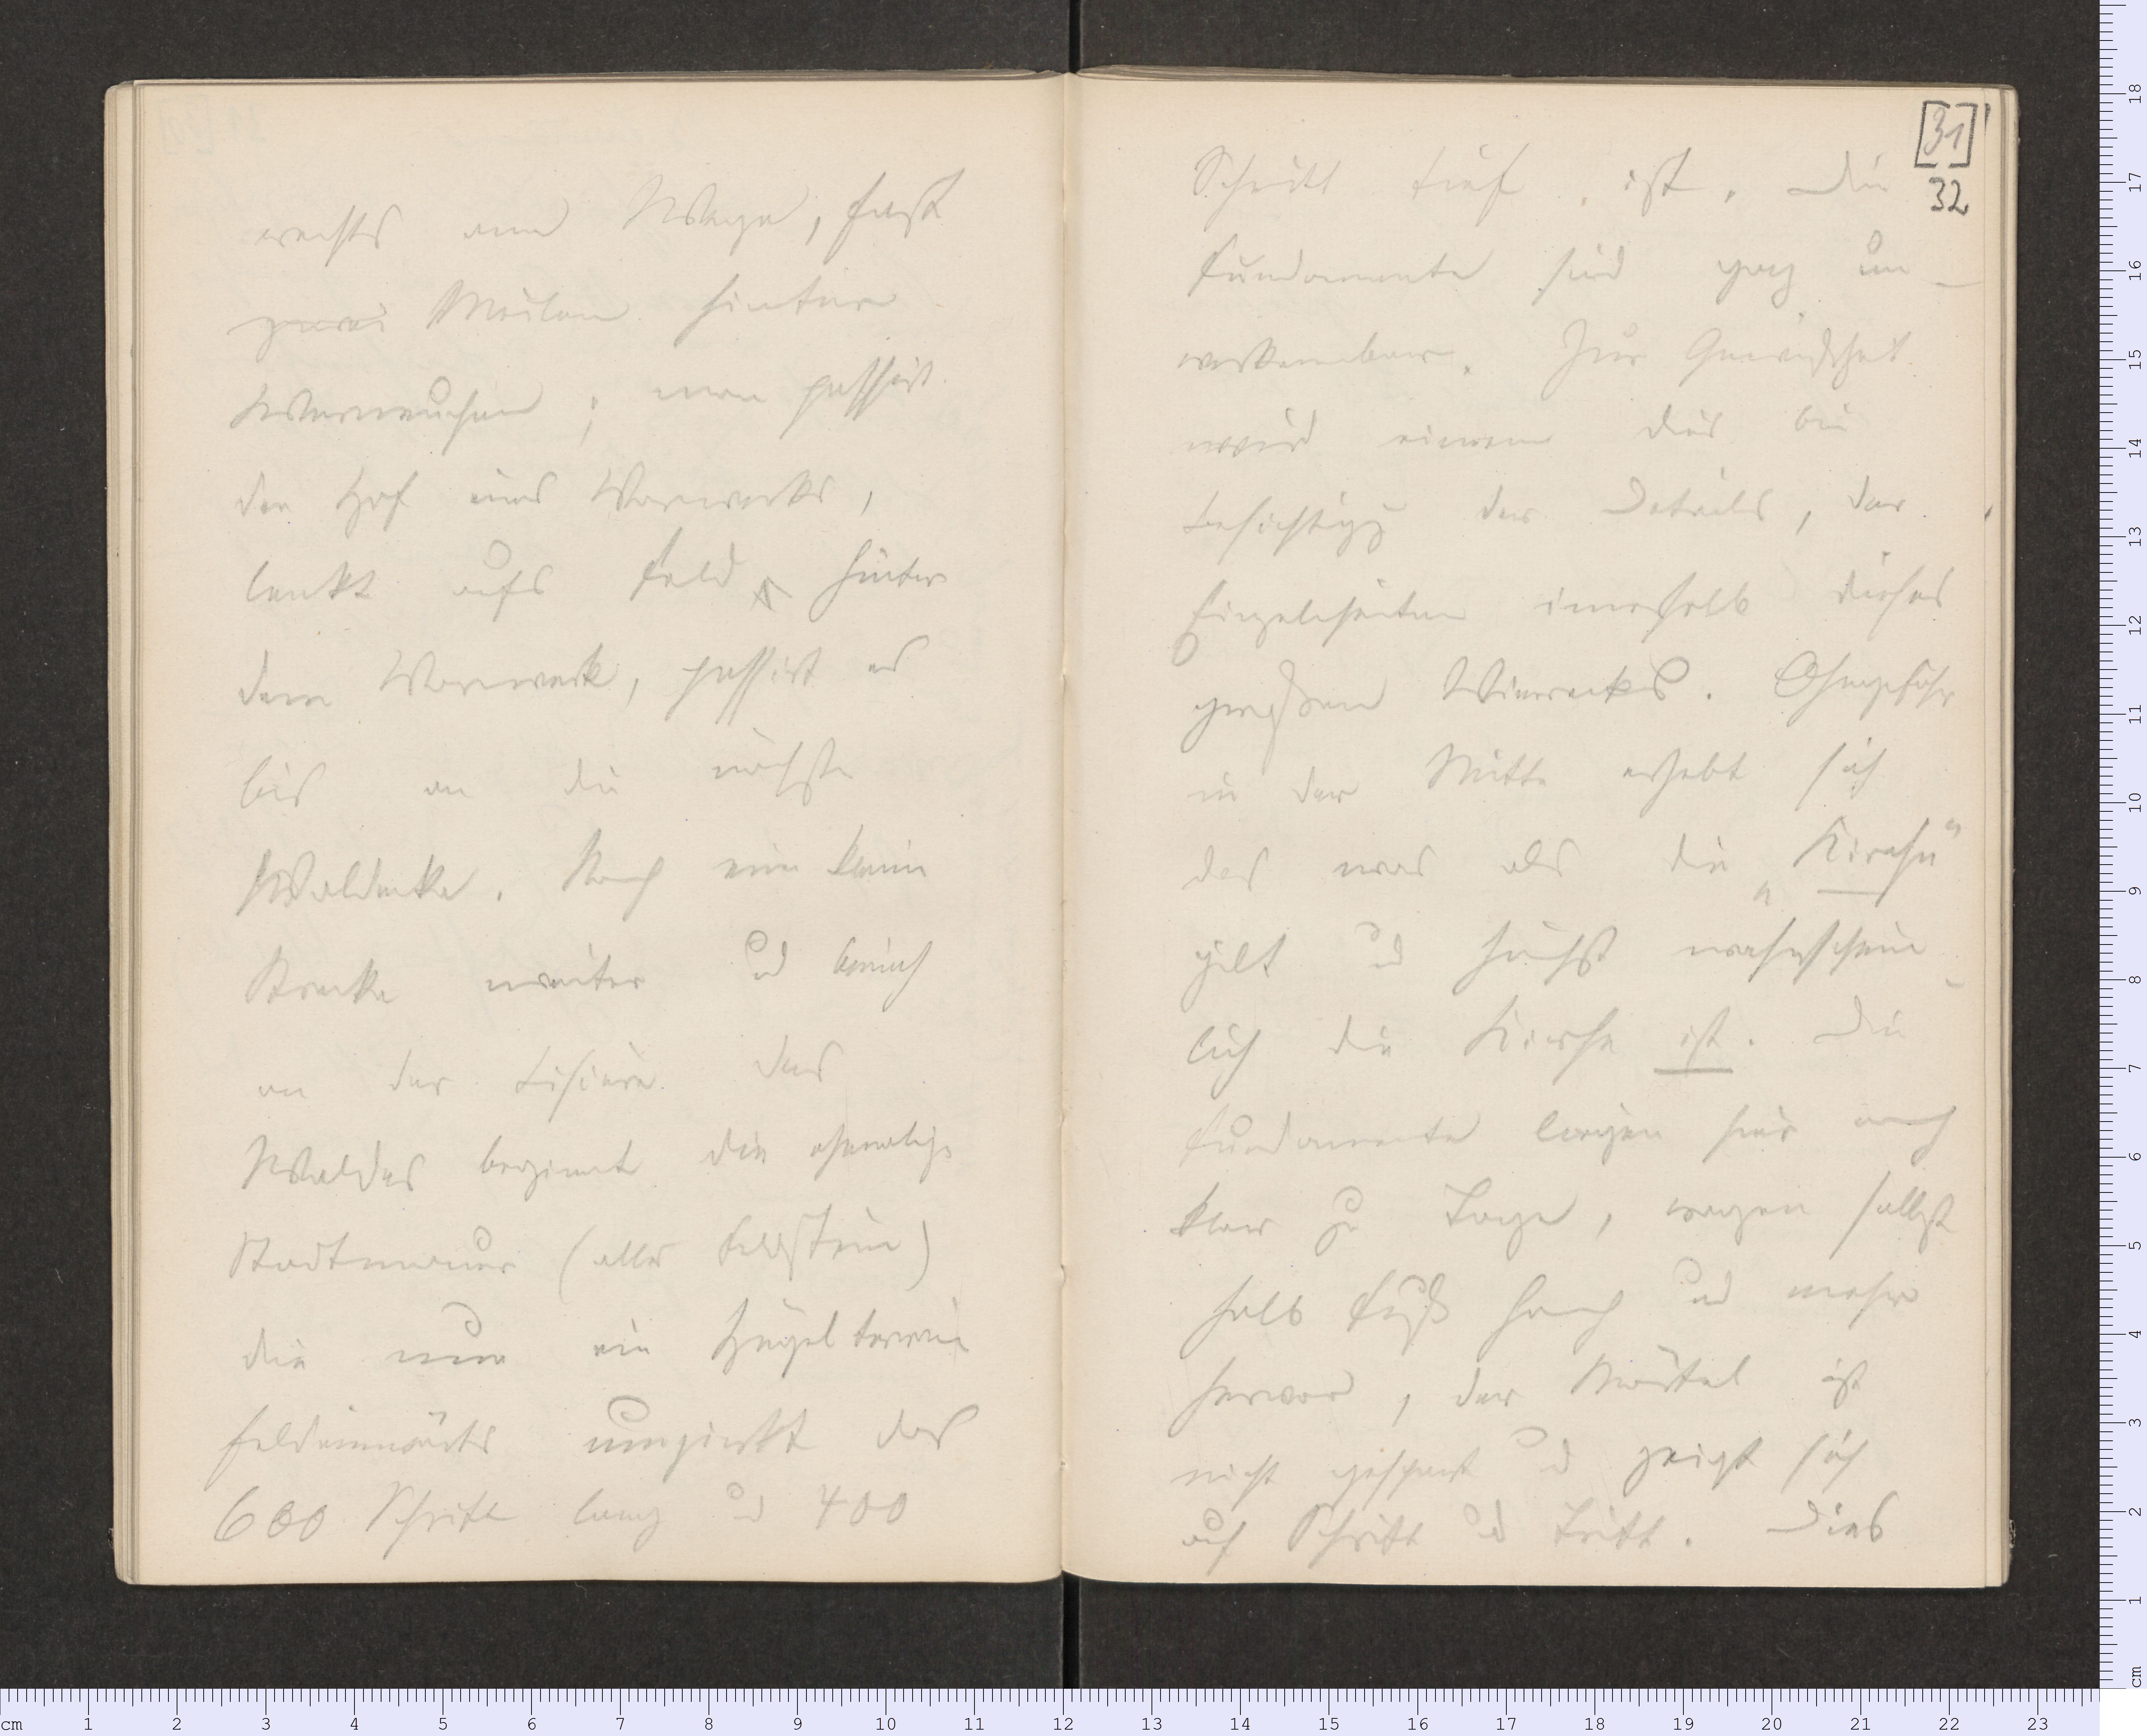 rechts am Wege, fast
zwei Meilen hinter
Werneuchen; man passirt
den Hof eines Vorwerks,
lenkt aufs Feld hinter
dem Vorwerk, passirt es
bis an die nächste
Waldecke. Noch eine kleine
Strecke weiter und
an der Lisière des
Waldes beginnt die ehemalige
Stadtmauer (alles Feldstein)
die nun ein Hügelterrain
feldeinwärts umzirkt das
600 Schritt lang und 400
[31]
32
Schritt tief ist. Die
Fundamente sind ganz un-
verkennbar. Zur Gewißheit
wird einem dies bei
Besichtigung der Details, der
Einzelheiten innerhalb dieses
großen Vierecks. Ohngefähr
in der Mitte erhebt sich
das was als die „Kirche“
gilt und höchst wahrschein-
lich die Kirche ist. Die
Fundamente liegen hier noch
klar zu Tage, ragen selbst
halb Fuß hoch und mehr
hervor, der Mörtel ist
nicht gespart und zeigt sich
auf Schritt und Tritt. Dies